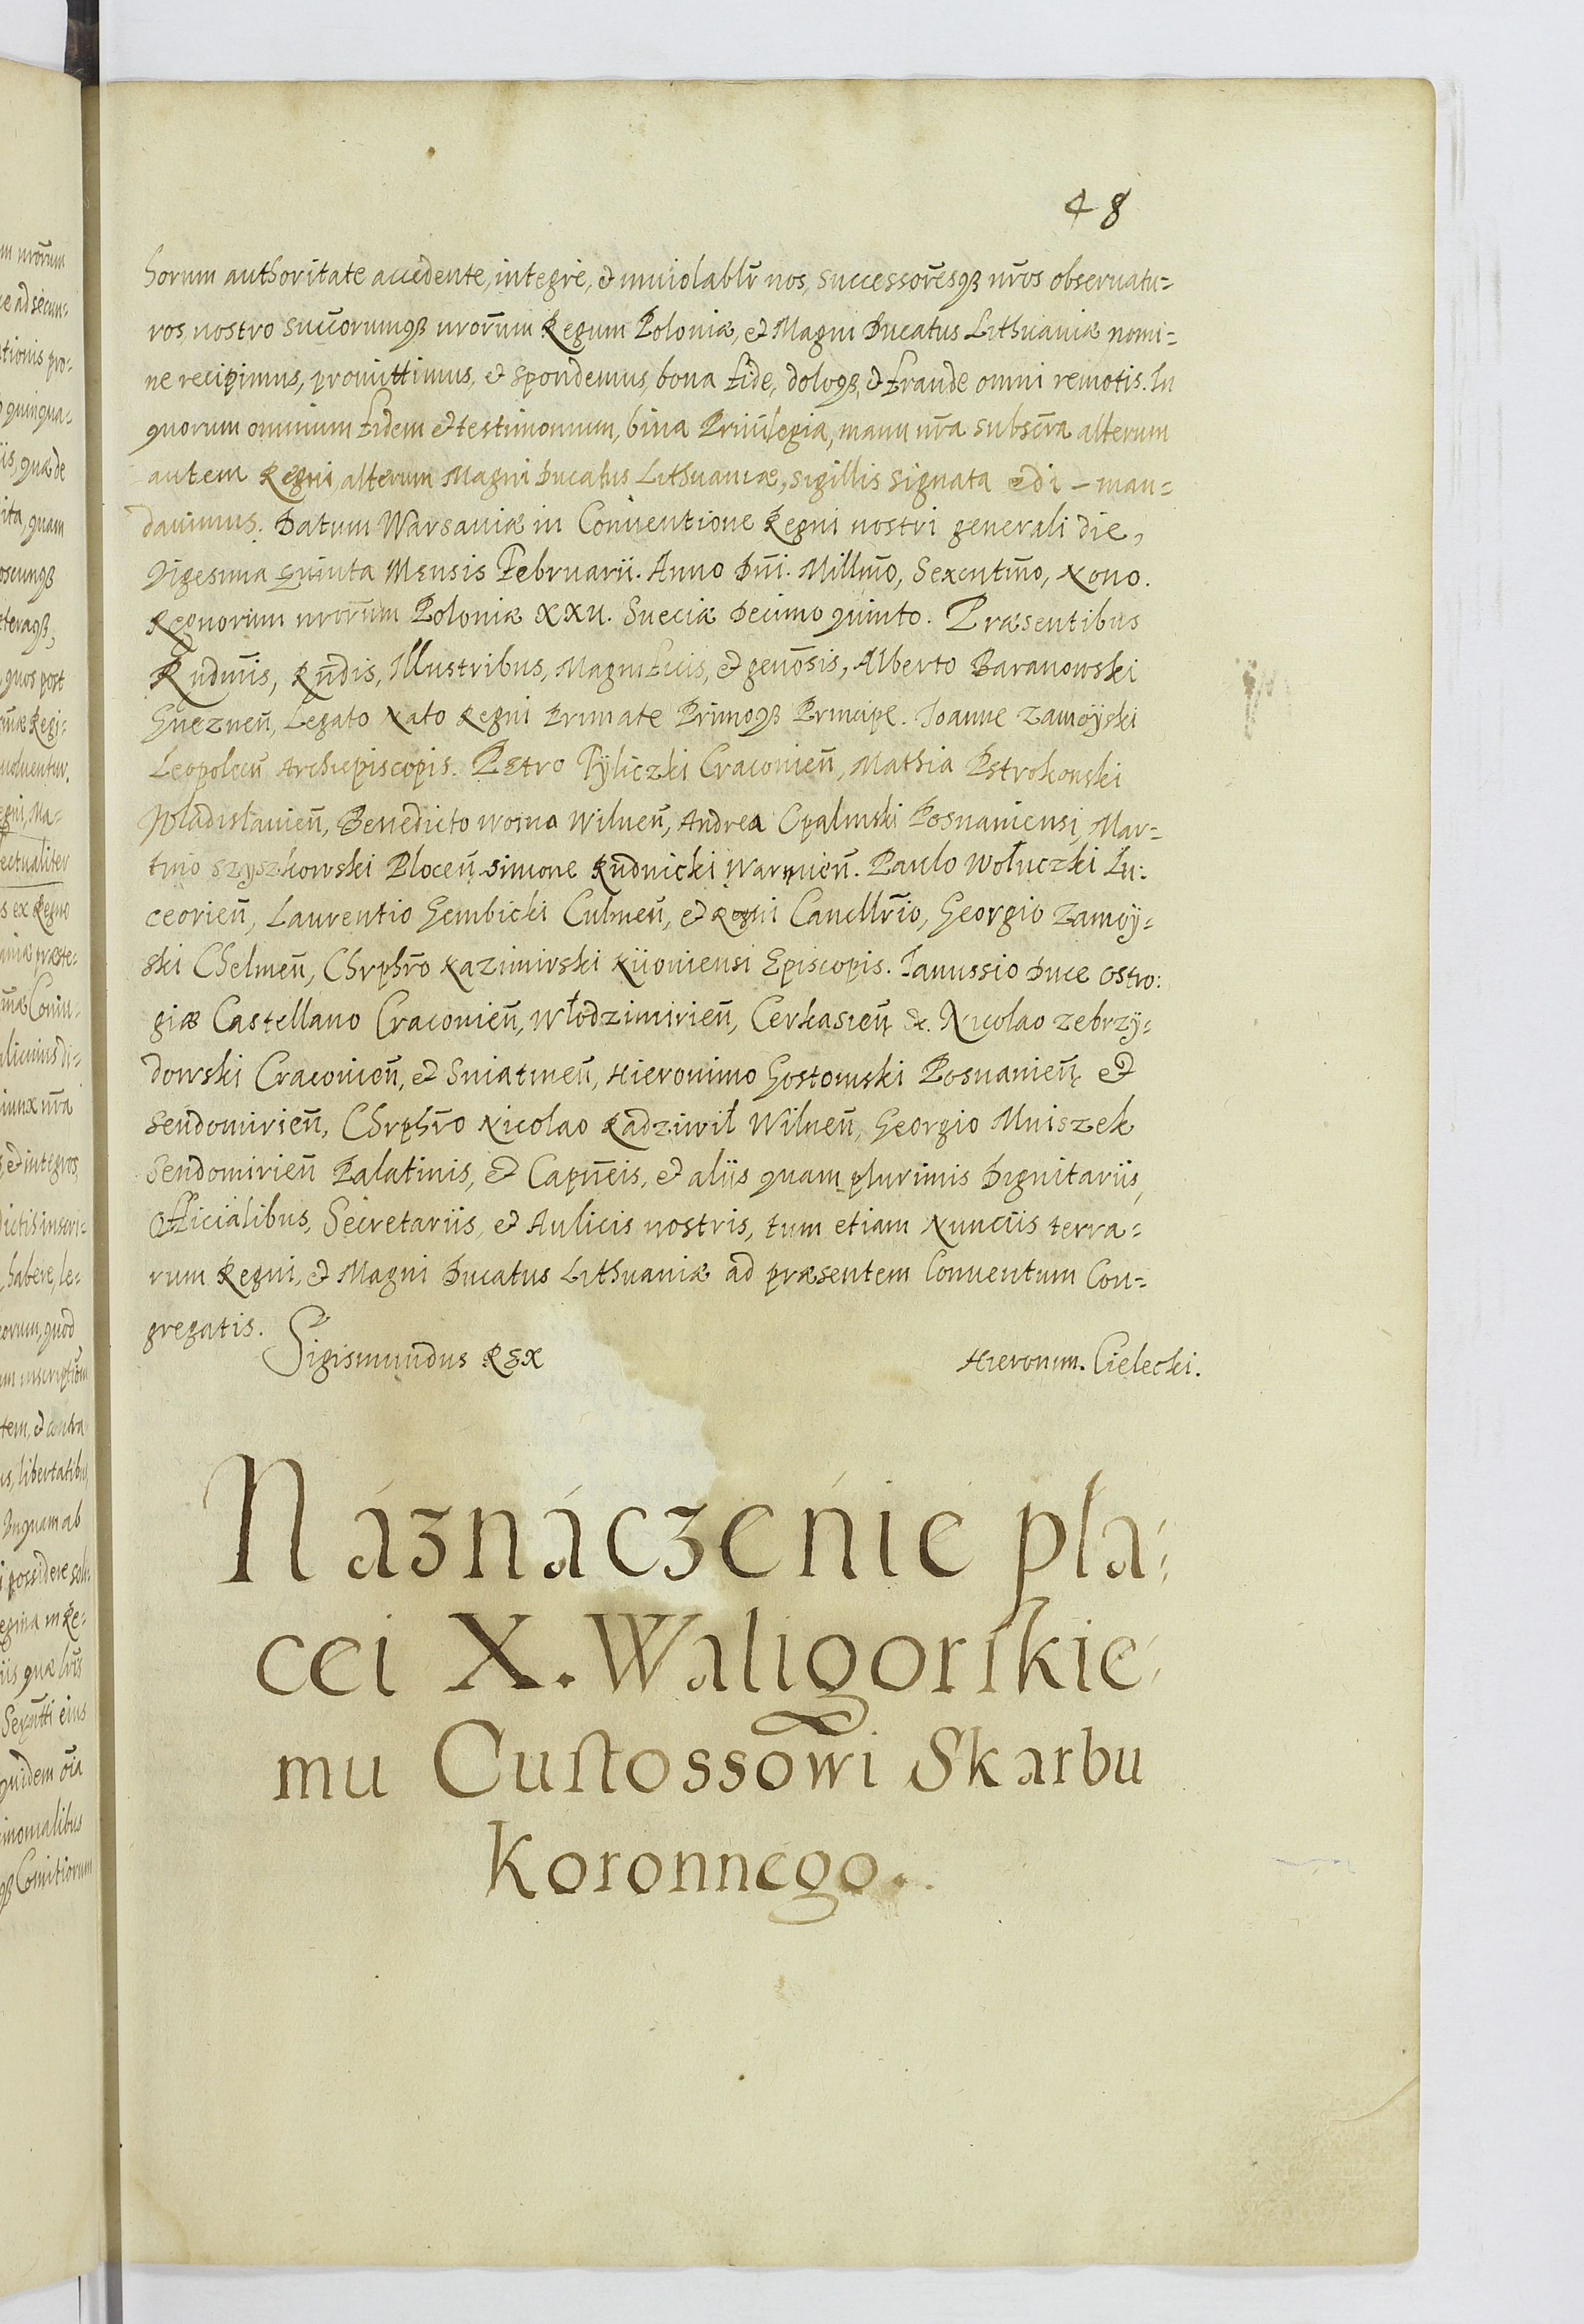 48
horum authoritate accedente, integrè, et inuiolablr̃ nos, successorẽsqȝ nr̃os obseruatu=
ros, nostro succorumqȝ nrorũm Regum Poloniæ, et Magni Ducatus Lithuaniæ nomi=
ne recipimus, promittimus, et spondemus, bona fide, doloqȝ, et fraude omni remotis. In
quorum omnium fidem et testimonium, bina Priuilegia, manu nr̃a subscr̃a alterum
autem Regni, alterum Magni Ducatus Lithuaniæ, sigillis signata edi – man=
dauimus. Datum Warsauiæ in Conuentione Regni nostri generali die,
Vigesima Quinta Mensis Februarii. Anno Dñi. Millm̃o, Sexcentm̃o, Nono.
Regnorum nrorũm Poloniæ XXII. Sueciæ Decimo quinto. Præsentibus
Rndmĩs, Rñdis, Illustribus, Magnificis, et genõsis, Alberto Baranowski
Gneznen̄, Legato Nato Regni Primate Primoqȝ Principe. Ioanne Zamoÿski
Leopolien̄ Archiepiscopis. Petro Tÿliczki Cracouien̄, Mathia Pstrokonski
Wladislauien̄, Benedicto Woina Wilnen̄, Andrea Opalinski Posnaniensi, Mar=
tino Szyszkowski Plocen̄ Simone Rudnicki Warmien̄. Paulo Wołuczki Lu:
ceorien̄, Laurentio Gembicki Culmen̄, et Regni Cancellr̃io, Georgio Zamoÿ=
ski Chelmen̄, Chrphr̃o Kazimirski Kiiouiensi Episcopis. Ianussio Duce Ostro:
giæ Castellano Cracouien̄, Włodzimirien̄, Cerkasien̄ &c. Nicolao Zebrzÿ=
dowski Cracouien̄, et Sniatinen̄, Hieronimo Gostomski Posnanien̄ et
Sendomirien̄, Chrphr̃o Nicolao Radziwił Wilnen̄, Georgio Mniszek
Sendomirien̄ Palatinis, et Capnẽis, et aliis quam plurimis Dignitariis,
Officialibus, Secretariis, et Aulicis nostris, tum etiam Nunciis terra=
rum Regni, et Magni Ducatus Lithuaniæ ad præsentem Conuentum Con=
gregatis.
Sigismundus Rex Hieronim. Cielecki.
Náznáczenie pła=
cei X. Waligorskie=
mu Custossowi Skarbu
Koronnego.